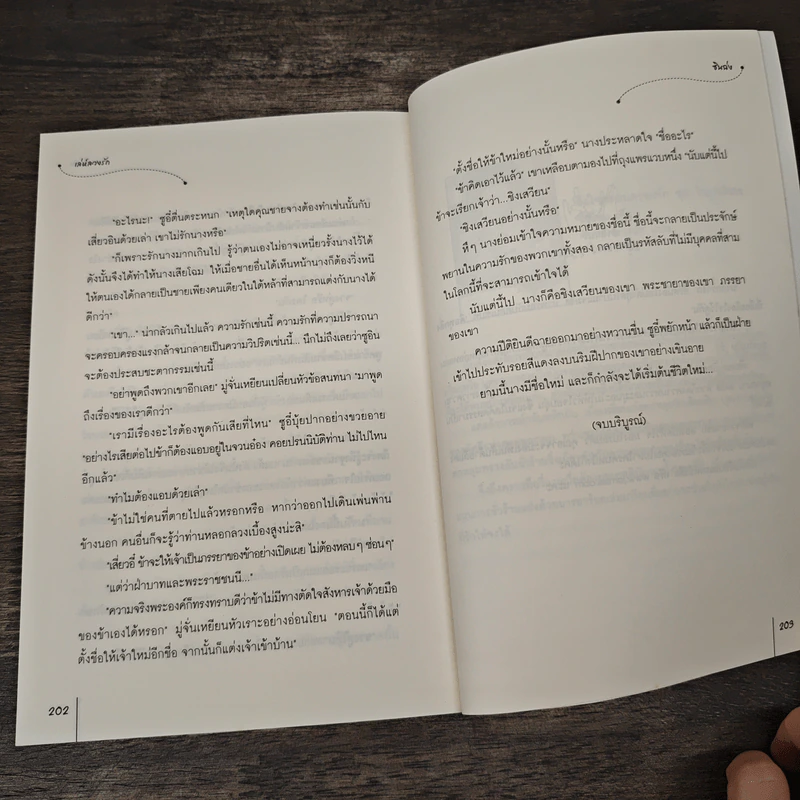 เล่ห์ลวงรัก
"อะไรนะ!" ซูอี้ตื่นตระหนก "เหตุใดคุณชายจางต้องทำเช่นนั้นกับ
เสี่ยวอินด้วยเล่า เขาไม่รักนางหรือ"
"ก็เพราะรักนางมากเกินไป รู้ว่าตนเองไม่อาจเหนี่ยวรั้งนางไว้ได้
ดังนั้นจึงได้ทำให้นางเสียโฉม ให้เมื่อชายอื่นได้เห็นหน้านางก็ต้องวิ่งหนี
ให้ตนเองได้กลายเป็นชายเพียงคนเดียวในใต้หล้าที่สามารถแต่งกับนางได้
ดีกว่า"
"เขา..." น่ากลัวเกินไปแล้ว ความรักเช่นนี้ ความรักที่ความปรารถนา
จะครอบครองแรงกล้าจนกลายเป็นความวิปริตเช่นนี้... นึกไม่ถึงเลยว่าซูอิน
จะต้องประสบชะตากรรมเช่นนี้
"อย่าพูดถึงพวกเขาอีกเลย" มู่จั่นเหยียนเปลี่ยนหัวข้อสนทนา "มาพูด
ถึงเรื่องของเราดีกว่า"
"เรามีเรื่องอะไรต้องพูดกันเสียที่ไหน" ซูอี้บุ้ยปากอย่างขวยอาย
"อย่างไรเสียต่อไปข้าก็ต้องแอบอยู่ในจวนอ๋อง คอยปรนนิบัติท่าน ไม่ไปไหน
อีกแล้ว"
"ทำไมต้องแอบด้วยเล่า"
"ข้าไม่ใช่คนที่ตายไปแล้วหรอกหรือ หากว่าออกไปเดินเพ่นพ่าน
ข้างนอก คนอื่นก็จะรู้ว่าท่านหลอกลวงเบื้องสูงน่ะสิ"
"เสี่ยวอี้ ข้าจะให้เจ้าเป็นภรรยาของข้าอย่างเปิดเผย ไม่ต้องหลบๆ ซ่อนๆ"
"แต่ว่าฝ่าบาทและพระราชชนนี..."
"ความจริงพระองค์ก็ทรงทราบดีว่าข้าไม่มีทางตัดใจสังหารเจ้าด้วยมือ
ของข้าเองได้หรอก" มู่จั่นเหยียนหัวเราะอย่างอ่อนโยน "ตอนนี้ก็ได้แต่
ตั้งชื่อให้เจ้าใหม่อีกชื่อ จากนั้นก็แต่งเจ้าเข้าบ้าน"
202
ชิงเฉิง
"ตั้งชื่อให้ข้าใหม่อย่างนั้นหรือ" นางประหลาดใจ "ชื่ออะไร"
"ข้าคิดเอาไว้แล้ว" เขาเหลือบตามองไปที่ถุงแพรแวบหนึ่ง "นับแต่นี้ไป
ข้าจะเรียกเจ้าว่า...ชิงเสวียน"
"ชิงเสวียนอย่างนั้นหรือ"
หึๆ นางย่อมเข้าใจความหมายของชื่อนี้ ชื่อนี้จะกลายเป็นประจักษ์
พยานในความรักของพวกเขาทั้งสอง กลายเป็นรหัสลับที่ไม่มีบุคคลที่สาม
ในโลกนี้ที่จะสามารถเข้าใจได้
นับแต่นี้ไป นางก็คือชิงเสวียนของเขา พระชายาของเขา ภรรยา
ของเขา
ความปีติยินดีฉายออกมาอย่างหวานชื่น ซูอี้พยักหน้า แล้วก็เป็นฝ่าย
เข้าไปประทับรอยสีแดงลงบนริมฝีปากของเขาอย่างเขินอาย
ยามนี้นางมีชื่อใหม่ และก็กำลังจะได้เริ่มต้นชีวิตใหม่...
(จบบริบูรณ์)
203